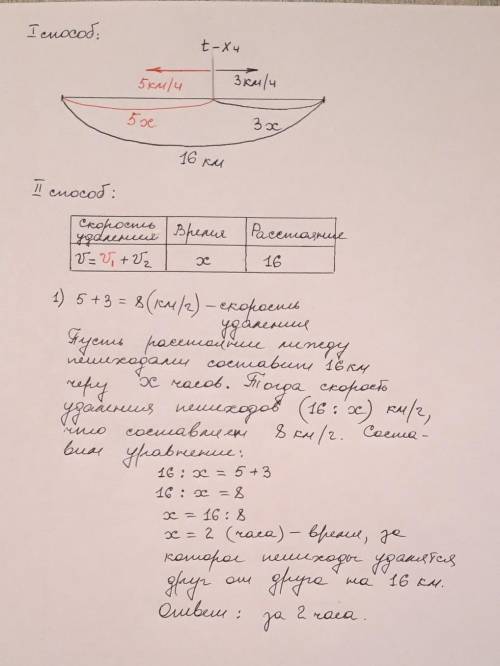 I способ:
t – x ч
5 км/ч 3 км/ч
5x 3x
16 км
II способ:
Скорость удаления Время Расстояние
v = v₁ + v₂ x 16
1) 5 + 3 = 8 (км/г) – скорость
удаления
Пусть расстояние между
пешеходами составит 16 км
через x часов. Тогда скорость
удаления пешеходов (16 : x) км/г,
что составляет 8 км/г. Соста-
вим уравнение:
16 : x = 5 + 3
16 : x = 8
x = 16 : 8
x = 2 (часа) – время, за
которое пешеходы удалятся
друг от друга на 16 км.
Ответ: за 2 часа.